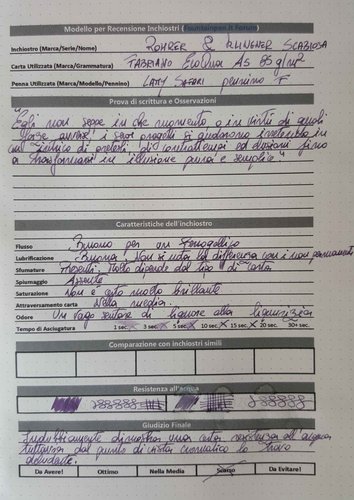 Modello per Recensione Inchiostri (Fountainpen.it Forum)
Inchiostro (Marca/Serie/Nome) ROHRER & KLINGNER SCABIOSA
Carta Utilizzata (Marca/Grammatura) FABRIANO EcoQua A5 85 g/m²
Penna Utilizzata (Marca/Modello/Pennino) LAMY SAFARI pennino F
Prova di scrittura e Osservazioni
"Egli non seppe in che momento o in virtù di quali
forze avverse i suoi progetti si giudarono in
un intrico di pretesti, di contrattempi ed evasioni fino
a trasformarsi in illusione pura e semplice"
Caratteristiche dell'inchiostro
Flusso Buono per un ferrogallico
Lubrificazione Buona, Non si nota la differenza con i non permanenti
Sfumature Presenti. Molto dipende dal tipo di carta
Spiumaggio Assente
Saturazione Non è certo molto brillante
Attraversamento carta Nella media.
Odore Un vago sentore di liquore alla liquirizia
Tempo di Asciugatura 1 sec. 3 sec. 5 sec. 10 sec. 15 sec. 20 sec. 30+ sec.
Comparazione con inchiostri simili
Resistenza all'acqua
Giudizio Finale
Indubbiamente dimostra una certa resistenza all'acqua
tuttavia dal punto di vista cromatico lo trovo
deludente.
Da Avere! Ottimo Nella Media Scarso Da Evitare!